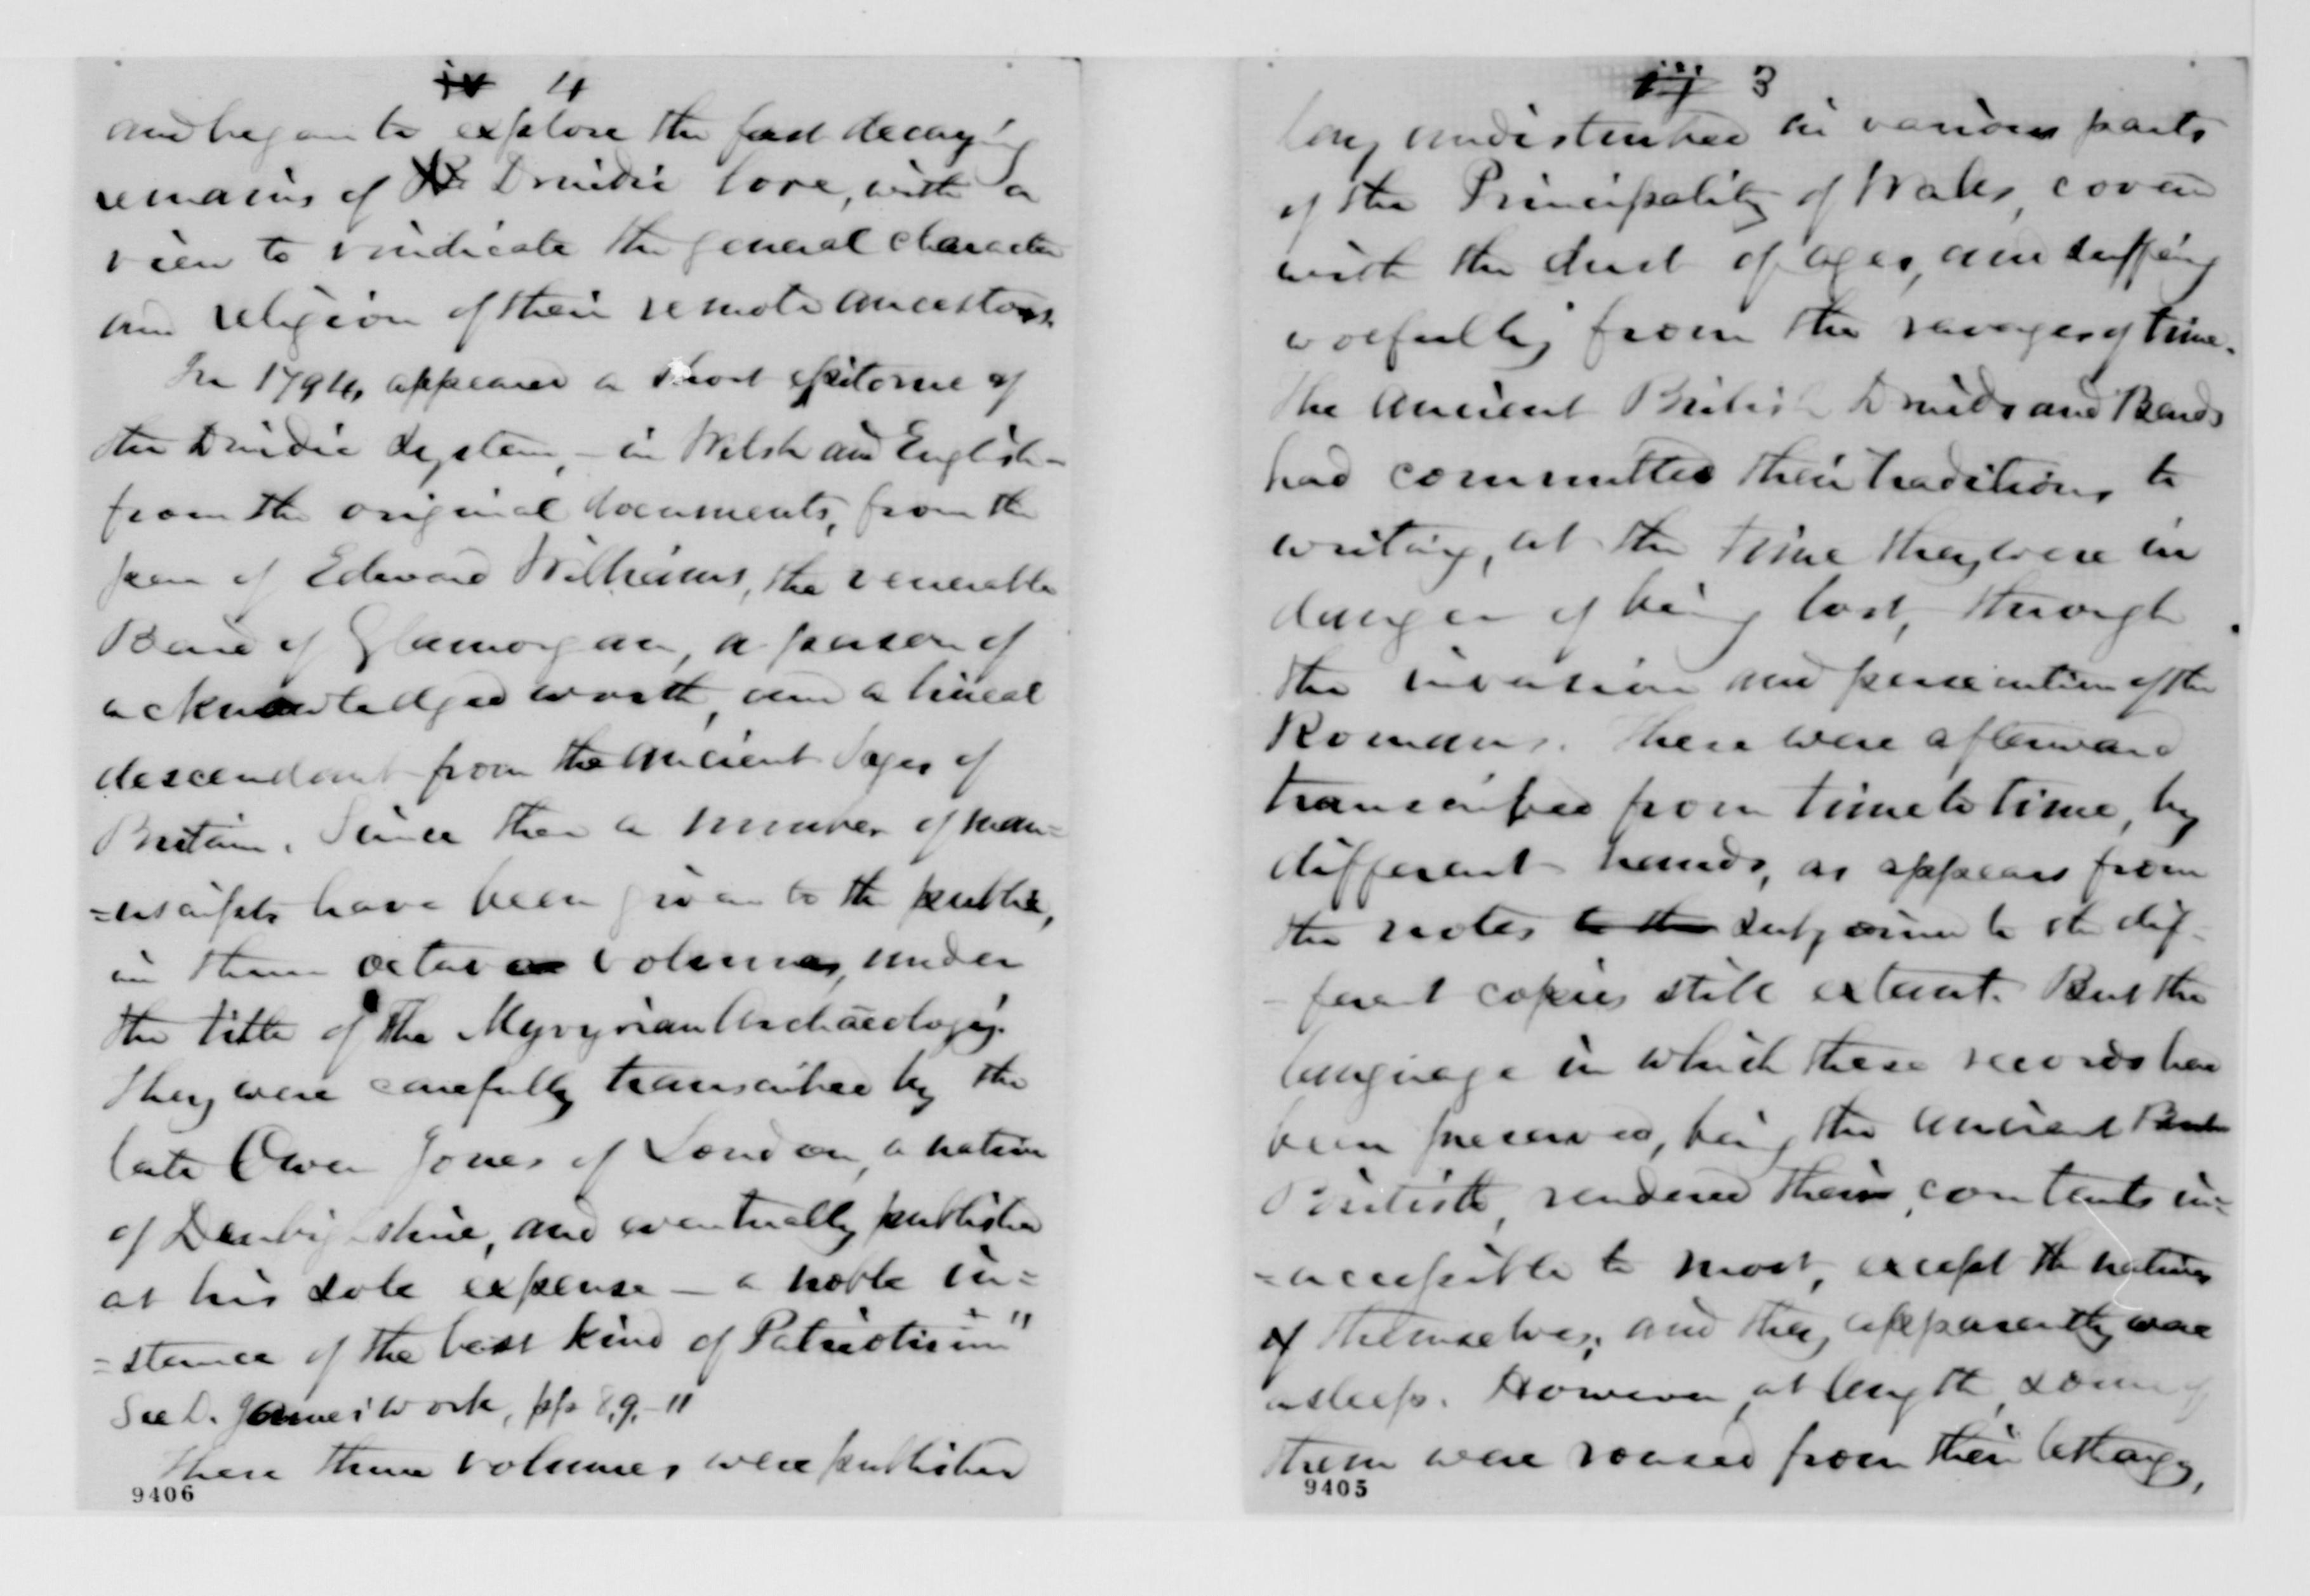 iv 4
and began to explore the fast decaying
remains of the Druidic lore, with a
view to vindicate the general character
and religion of their remote ancestors.
In 1794, appeared a short epitome of
the Druidic System, - in Welsh and English -
from the original documents, from the
pen of Edward Williams, the venerable
Bard of Glamorgan, a person of
acknowledged worth, and a lineal
descendant from the ancient Sages of
Britain. Since then a number of man=
=uscripts have been given to the public,
in three octavo volumes, under
the title of The Myvyrian Archaeology.
They were carefully transcribed by the
late Owen Jones of London, a native
of Denbighshire, and eventually published
at his sole expense - a noble in=
=stance of the best kind of Patriotism"
See D. James's work, pp. 8, 9, - 11
These three volumes, were published
9406
iij 3
long undisturbed in various parts
of the Principality of Wales, covered
with the dust of ages, and suffering
woefully from the ravages of time.
The ancient British Druids and Bards
had committed their traditions to
writing, at the time they were in
danger of being lost, through
the invasion and persecution of the
Romans. These were afterward
transcribed from time to time, by
different hands, as appears from
the notes to the subjoined to the dif-
- ferent copies still extant. But the
language in which these records have
been preserved, being the ancient
British, rendered their contents in=
=accessible to most, except the natives
of themselves; and they apparently were
asleep. However, at length, some of
them were roused from their lethargy,
9405